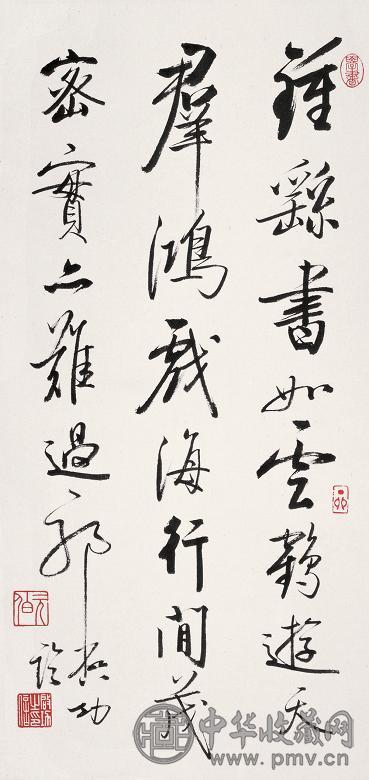 鍾繇書如雲鵠遊天
羣鴻戲海行間茂
密實亦難過耶
啟功
臨
中华收藏网
www.pmv.cn